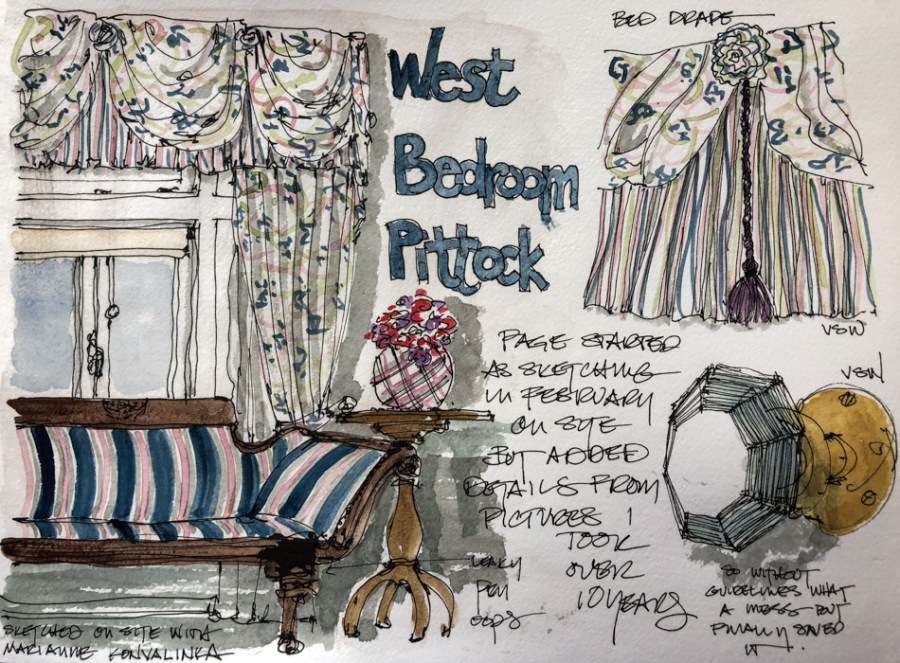 West
Bedroom
Pittock
BED DRAPE
VSW
VSW
PAGE STARTED
AS SKETCHING
IN FEBRUARY
ON SITE
BUT ADDED
DETAILS FROM
PICTURES I
TOOK
OVER
10 YEARS
LEAKY
PEN
OOPS
SO WITHOUT
GUIDELINES WHAT
A MESS BUT
FINALLY SAVED
IT.
SKETCHED ON SITE WITH
MARIANNE KONVALINKA